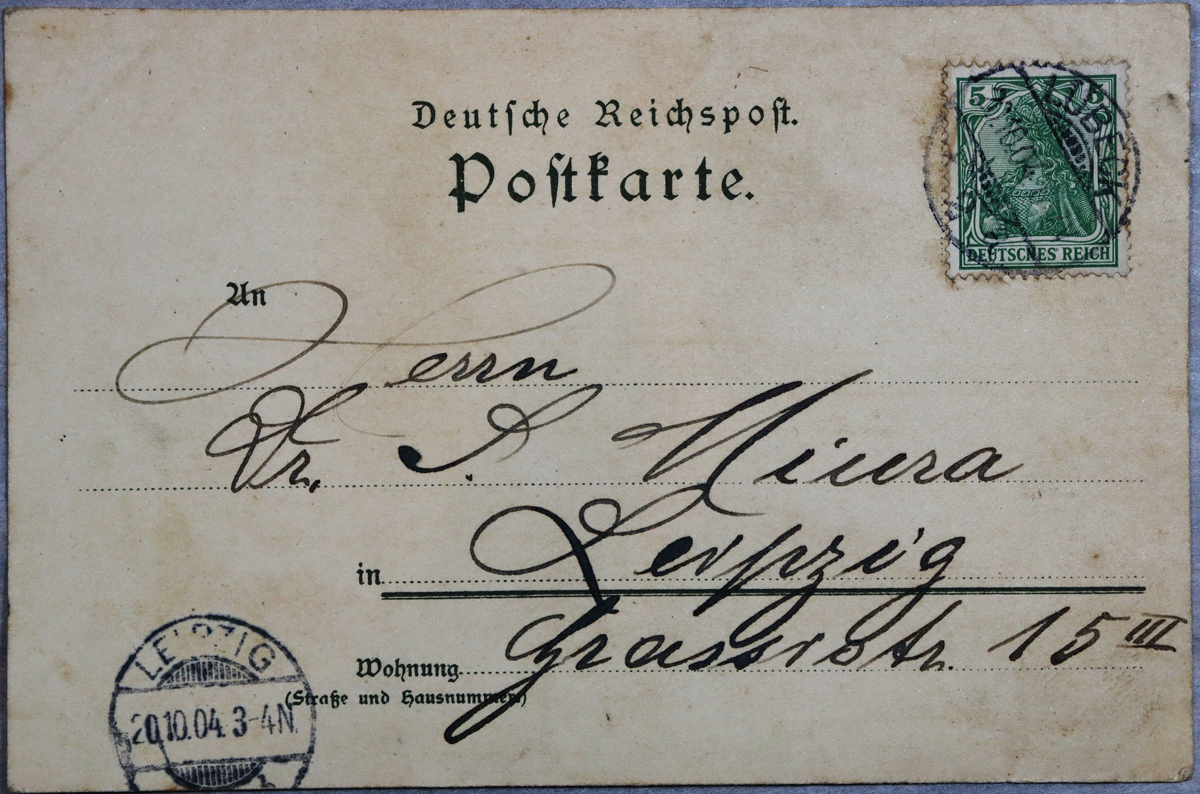 Deutsche Reichspost.
Postkarte.
5 5
LÜBECK
DEUTSCHES REICH
An
Herrn
Dr. S. Miura
in Leipzig
Wohnung Grassistr. 15 III
(Straße und Hausnummer)
LEIPZIG
20.10.04. 3-4N.